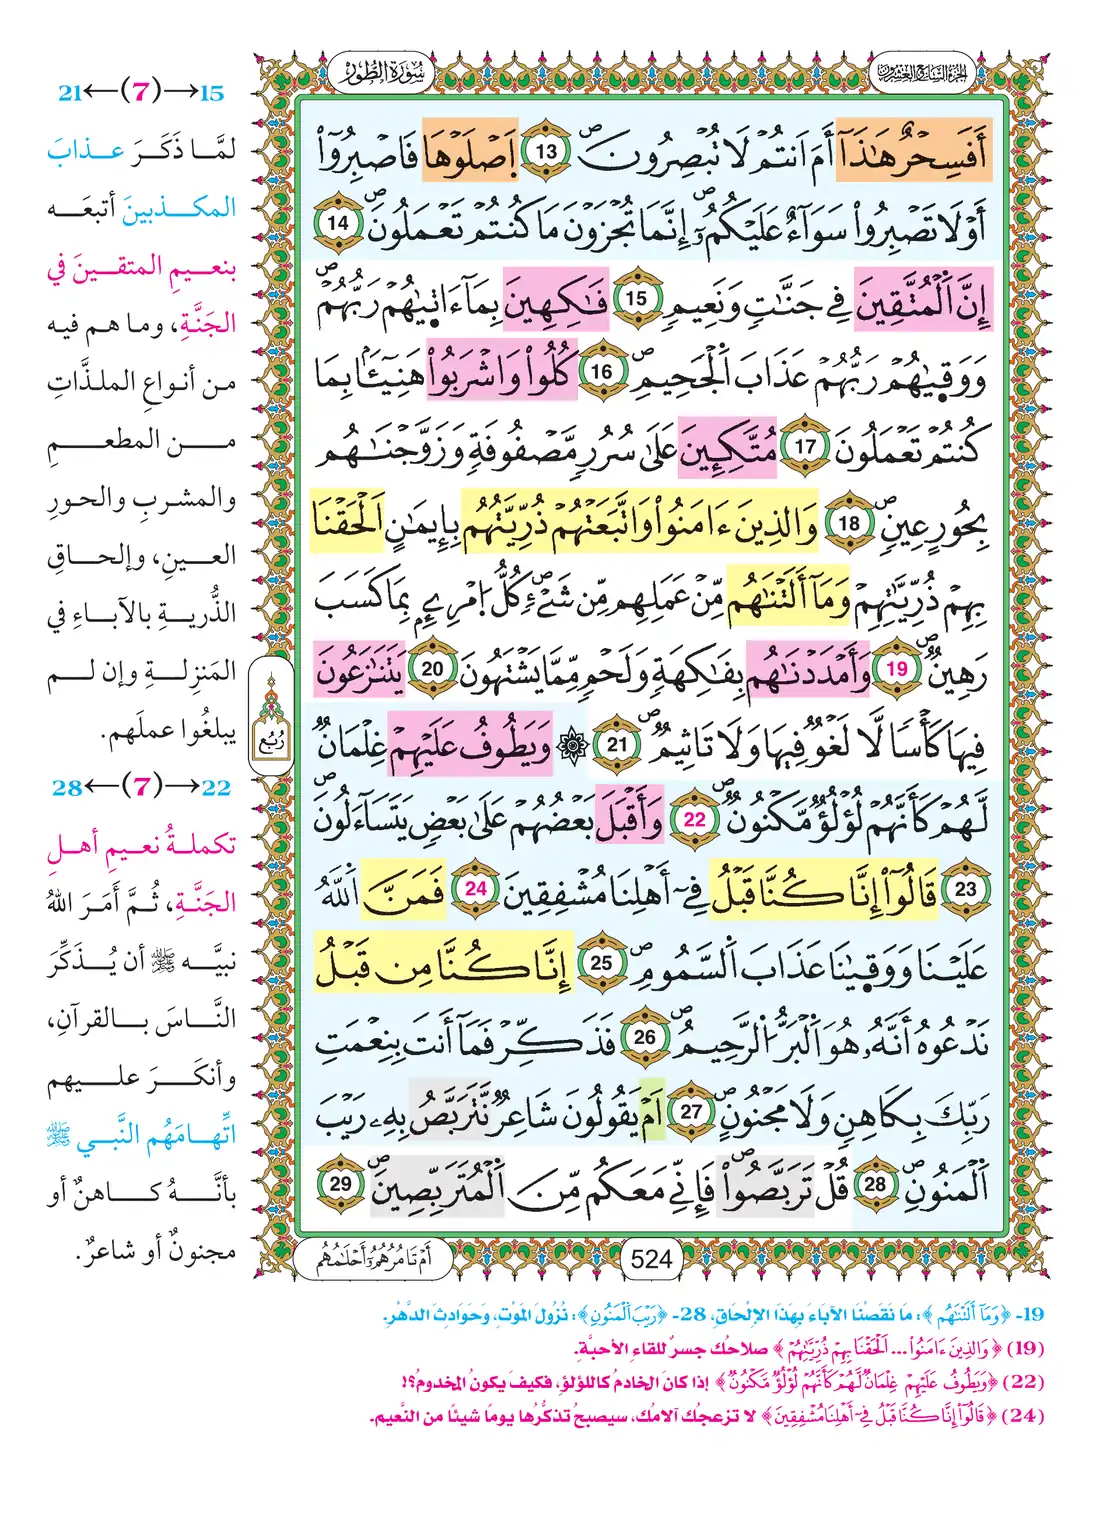 سُورَةُ الطُّورِ
الجُزْءُ السَّابِعُ وَالعِشْرُونَ
أَفَسِحْرٌ هَٰذَآ أَمَ اَنتُمْ لَا تُبْصِرُونَ 13 اَصْلَوْهَا فَاصْبِرُوٓاْ
أَوْ لَا تَصْبِرُواْ سَوَآءٌ عَلَيْكُمُۥٓ إِنَّمَا تُجْزَوْنَ مَا كُنتُمْ تَعْمَلُونَ 14
إِنَّ اَلْمُتَّقِينَ فِي جَنَّٰتٍ وَنَعِيمٍ 15 فَٰكِهِينَ بِمَآ ءَاتٜىٰهُمْ رَبُّهُمْ
وَوَقٜىٰهُمْ رَبُّهُمْ عَذَابَ اَلْجَحِيمِ 16 كُلُواْ وَاشْرَبُواْ هَنِيٓـَٔاۢ بِمَا
كُنتُمْ تَعْمَلُونَ 17 مُتَّكِـِٕينَ عَلَىٰ سُرُرٍ مَّصْفُوفَةٍ وَزَوَّجْنَٰهُم
بِحُورٍ عِينٍ 18 وَالذِينَ ءَامَنُواْ وَاتَّبَعَتْهُمْ ذُرِّيَّتُهُم بِإِيمَٰنٍ اَلْحَقْنَا
بِهِمْ ذُرِّيَّٰتِهِمْ وَمَآ أَلَتْنَٰهُم مِّنْ عَمَلِهِم مِّن شَےْءٍ كُلُّ اُمْرِيِٕۢ بِمَا كَسَبَ
رَهِينٌ 19 وَأَمْدَدْنَٰهُم بِفَٰكِهَةٍ وَلَحْمٍ مِّمَّا يَشْتَهُونَ 20 يَتَنَٰزَعُونَ
فِيهَا كَأْسًا لَّا لَغْوٌ فِيهَا وَلَا تَاثِيمٌ 21 ۞ وَيَطُوفُ عَلَيْهِمْ غِلْمَانٌ
لَّهُمْ كَأَنَّهُمْ لُؤْلُؤٌ مَّكْنُونٌ 22 وَأَقْبَلَ بَعْضُهُمْ عَلَىٰ بَعْضٍ يَتَسَآءَلُونَ
23 قَالُوٓاْ إِنَّا كُنَّا قَبْلُ فِےٓ أَهْلِنَا مُشْفِقِينَ 24 فَمَنَّ اَللَّهُ
عَلَيْنَا وَوَقٜىٰنَا عَذَابَ اَلسَّمُومِ 25 إِنَّا كُنَّا مِن قَبْلُ
نَدْعُوهُ أَنَّهُۥ هُوَ اَلْبَرُّ اُلرَّحِيمُ 26 فَذَكِّرْ فَمَآ أَنتَ بِنِعْمَتِ
رَبِّكَ بِكَاهِنٍ وَلَا مَجْنُونٍ 27 اَمْ يَقُولُونَ شَاعِرٌ نَّتَرَبَّصُ بِهِۦ رَيْبَ
اَلْمَنُونِ 28 قُلْ تَرَبَّصُواْ فَإِنِّي مَعَكُم مِّنَ اَلْمُتَرَبِّصِينَ 29
رُبُع
أَمْ تَامُرُهُمُۥٓ أَحْلَٰمُهُم
524
15→(7)←21
لمَّا ذَكَرَ عذابَ
المكذبينَ أتبعَه
بنعيمِ المتقينَ في
الجَنَّةِ، وما هم فيه
من أنواعِ الملذَّاتِ
من المطعمِ
والمشربِ والحورِ
العينِ، وإلحاقِ
الذُّريةِ بالآباءِ في
المَنزِلةِ وإن لم
يبلغُوا عملَهم.
22→(7)←28
تكملةُ نعيمِ أهلِ
الجَنَّةِ، ثُمَّ أَمَرَ اللهُ
نبيَّه ﷺ أن يُذَكِّرَ
النَّاسَ بالقرآنِ،
وأنكَرَ عليهم
اتِّهامَهُم النَّبي ﷺ
بأنَّهُ كاهنٌ أو
مجنونٌ أو شاعرٌ.
19- ﴿وَمَآ أَلَتْنَٰهُم﴾: مَا نَقَصْنَا الآبَاءَ بِهَذَا الإِلْحَاقِ، 28- ﴿رَيْبَ اَلْمَنُونِ﴾: نُزُولَ المَوْتِ، وَحَوَادِثَ الدَّهْرِ.
(19) ﴿وَالذِينَ ءَامَنُواْ ... اَلْحَقْنَا بِهِمْ ذُرِّيَّٰتِهِمْ﴾ صلاحُك جسرٌ للقاءِ الأحبَّةِ.
(22) ﴿وَيَطُوفُ عَلَيْهِمْ غِلْمَانٌ لَّهُمْ كَأَنَّهُمْ لُؤْلُؤٌ مَّكْنُونٌ﴾ إذا كانَ الخادمُ كاللؤلؤِ، فكيفَ يكونُ المخدومُ؟!
(24) ﴿قَالُوٓاْ إِنَّا كُنَّا قَبْلُ فِےٓ أَهْلِنَا مُشْفِقِينَ﴾ لا تزعجْك آلامُك، سيصبحُ تذكُّرُها يومًا شيئًا من النَّعيم.